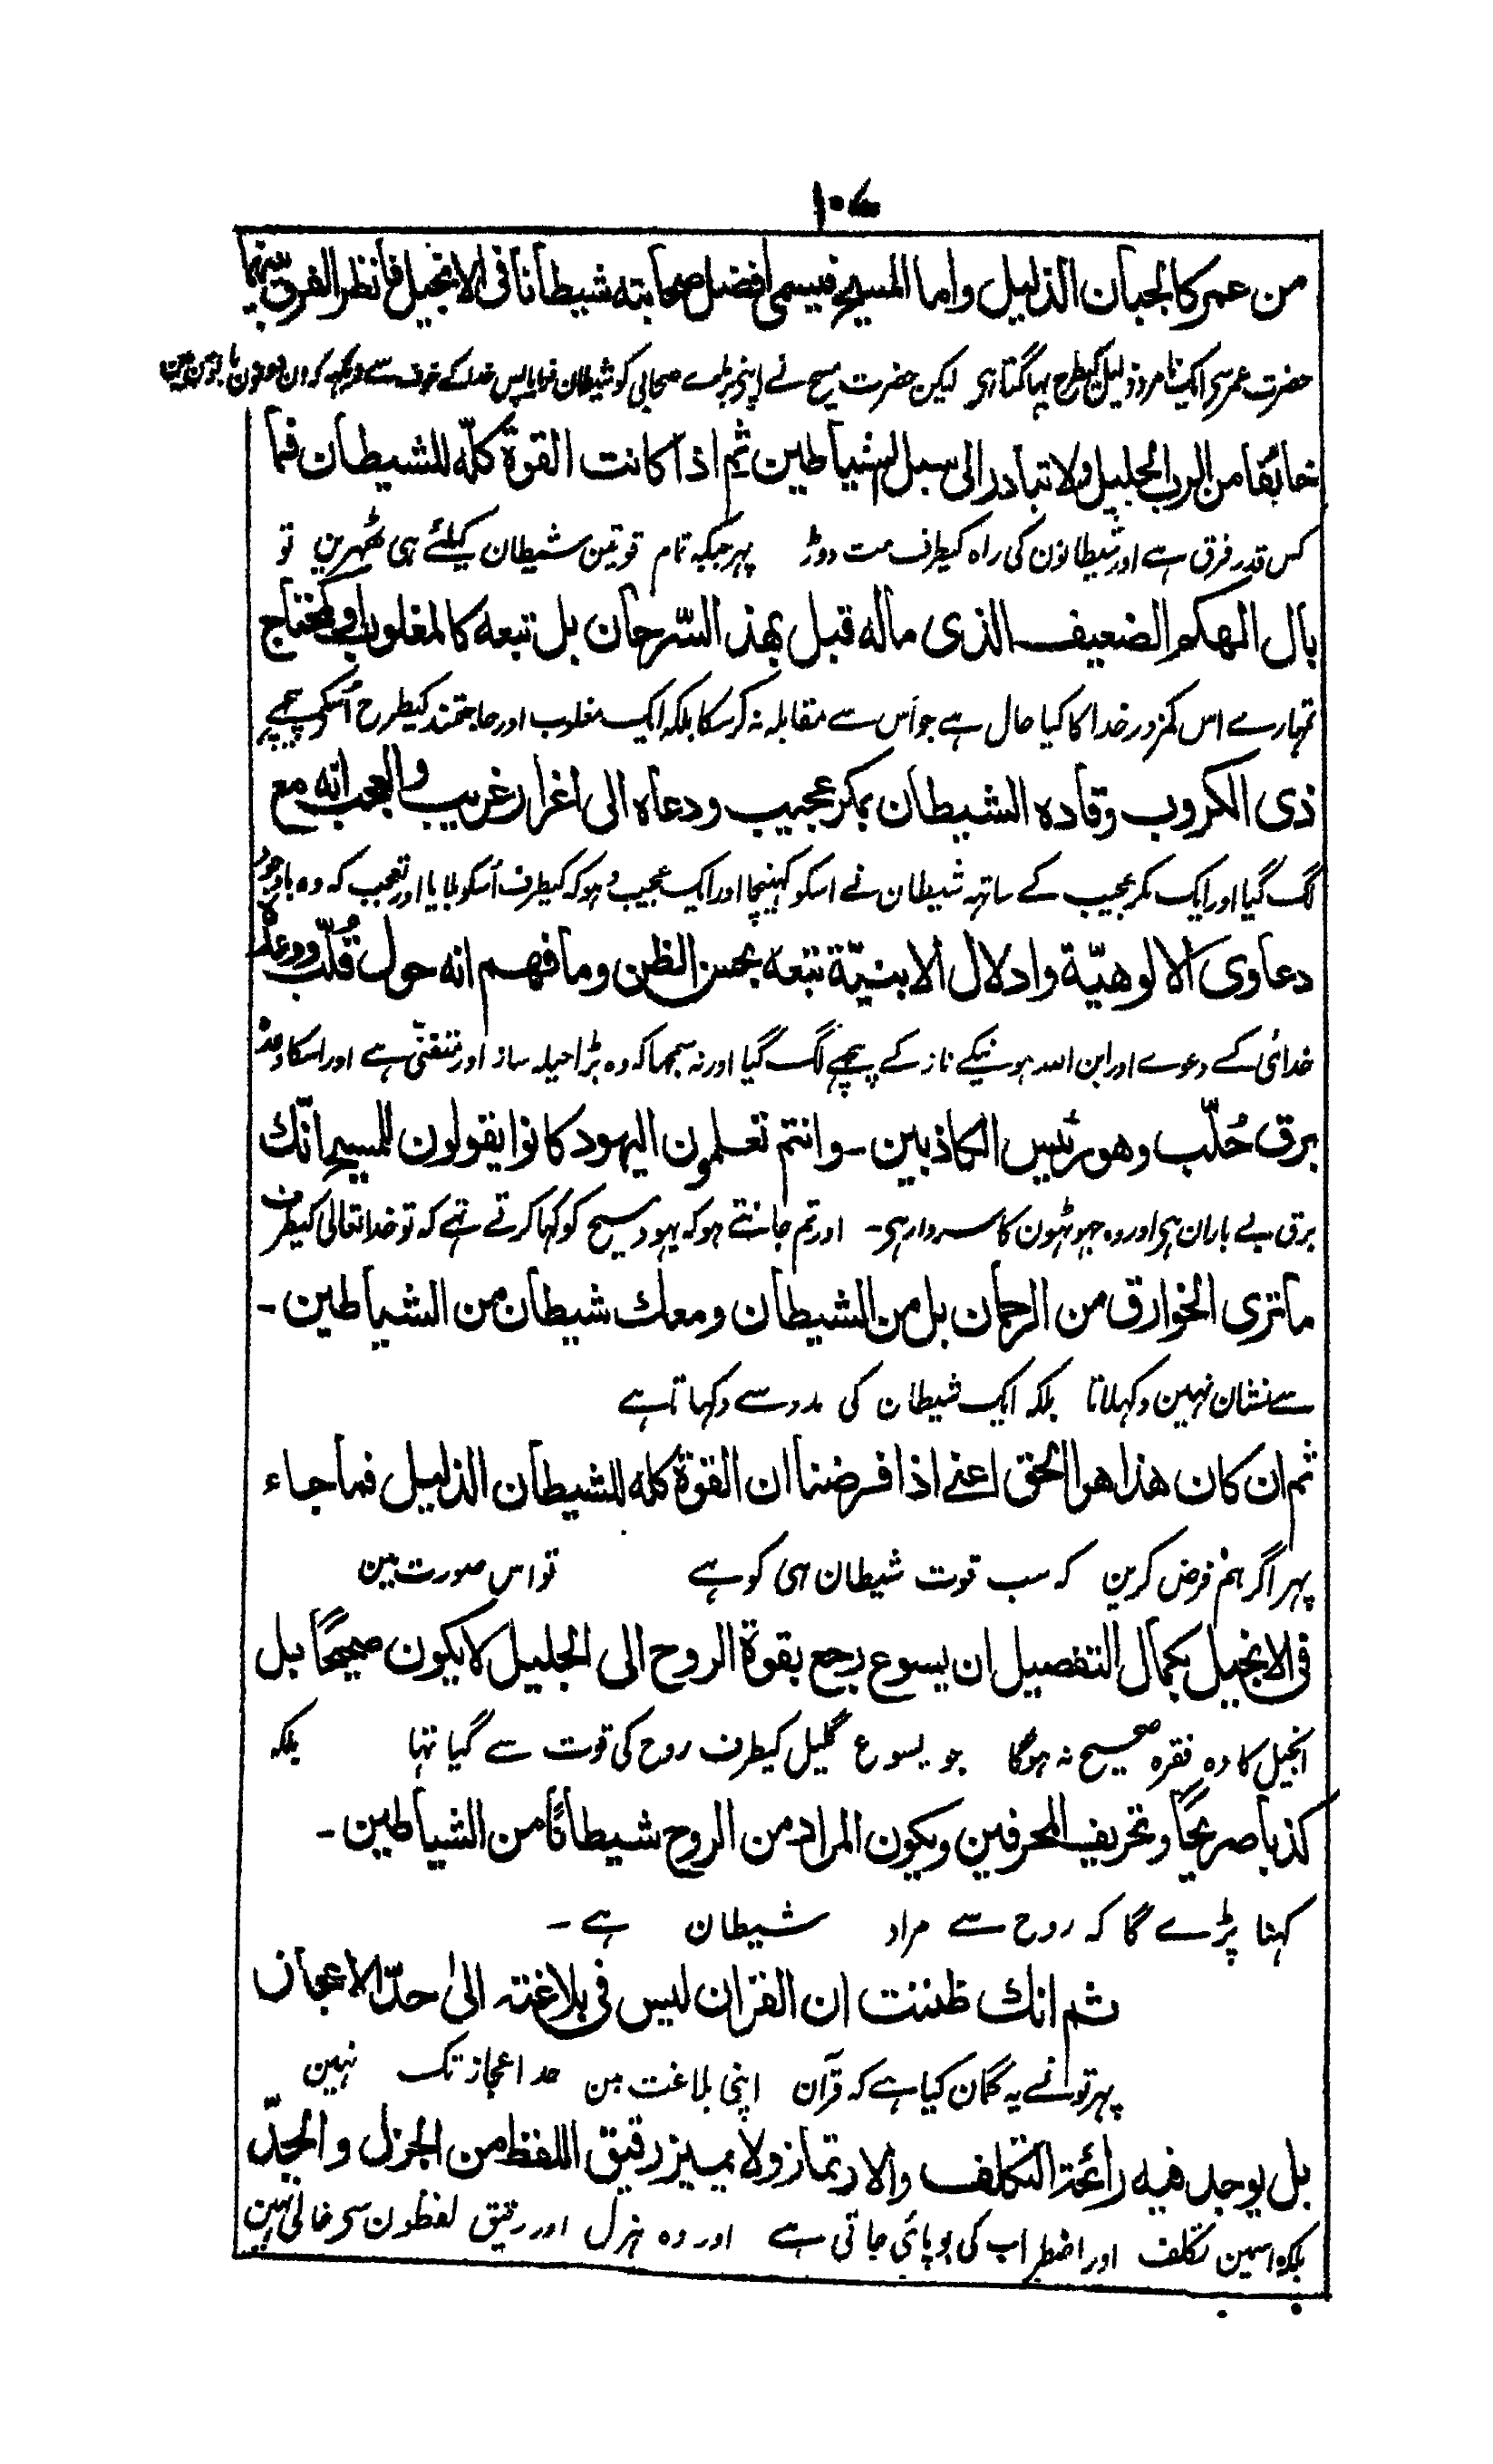 ۱۰۷
من عمر كالجبان الذليل واما المسيح فيسمى افضل صحابته شيطانا فى الانجيل فانظر الفرق بينهما
حضرت عمر سی ایک نامرد ذلیل کیطرح بہاگتا ہی لیکن حضرت مسیح نے اپنی بڑے صحابی کو شیطان فرمایا پس خدا کے خوف سے دیکہہ کہ ان دونون باتون مین
خائفا من الرب الجليل ولا تبادر الى سبل الشياطين ثم اذا كانت القوة كلّه للشيطان فما
کس قدر فرق ہے اور شیطانون کی راہ کیطرف مت دوڑ پہر جبکہ تمام قوتین شیطان کیلئے ہی ٹھہرین تو
بال الهكم الضعيف الذى ماله قبل بهذ السّرحان بل تبعه كالمغلوب او كمحتاج
تمہارے اس کمزور خدا کا کیا حال ہے جو اس سے مقابلہ نہ کر سکا بلکہ ایک مغلوب اور حاجتمند کیطرح اُسکے پیچھے
ذى الكروب وقاده الشيطان بمكر عجيب ودعاه الى اغرار غريب والعجب انه مع
لگ گیا اور ایک مکر عجیب کے ساتہہ شیطان نے اسکو کہینچا اور ایک عجیب دہوکہ کیطرف اُسکو بلایا اور تعجب کہ وہ باوجود
دعاوى الالوهيّة وادلال الابنيّة تبعه بحسن الظن وما فهم انه حول قُلّب ووعده
خدائی کے دعوے اور ابن اللہ ہونیکے ناز کے پیچھے لگ گیا اور نہ سمجہا کہ وہ بڑا حیلہ ساز اور متفنّی ہے اور اسکا وعدہ
برق خُلّب وهو رئيس الكاذبين ۔ وانتم تعلمون اليهود كانوا يقولون للمسيح انّك
برق بے باران ہی اور وہ جہوٹہون کا سردار ہی۔ اور تم جانتے ہو کہ یہود مسیح کو کہا کرتے تہے کہ تو خدا تعالیٰ کیطرف
ما ترى الخوارق من الرحمان بل من الشيطان ومعك شيطان من الشياطين ۔
سے نشان نہین دکہلاتا بلکہ ایک شیطان کی مدد سے دکہاتا ہے
ثم ان كان هذا هو الحق اعنے اذا فرضنا ان القوة كله للشيطان الذليل فما جاء
پہر اگر ہم فرض کرین کہ سب قوت شیطان ہی کو ہے تو اس صورت مین
فى الانجيل بكمال التفصيل ان يسوع رجع بقوة الروح الى الجليل لا يكون صحيحًا بل
انجیل کا وہ فقرہ صحیح نہ ہوگا جو یسوع گلیل کیطرف روح کی قوت سے گیا تہا بلکہ
كذبا صريحًا وتحريف المحرفين ويكون المراد من الروح شيطانًا من الشياطين ۔
کہنا پڑے گا کہ روح سے مراد شیطان ہے ۔
ثم انك ظننت ان القران ليس فى بلاغته الىٰ حدّ الاعجاز
پہر تونے یہ گمان کیا ہے کہ قرآن اپنی بلاغت مین حد اعجاز تک نہین
بل يوجد فيه رائحة التكلف والارتماز ولا يميز رقيق اللفظ من الجزل والجدّ
بلکہ اسمین تکلف اور اضطراب کی بو پائی جاتی ہے اور وہ ہزل اور رقیق لفظون سی خالی نہین